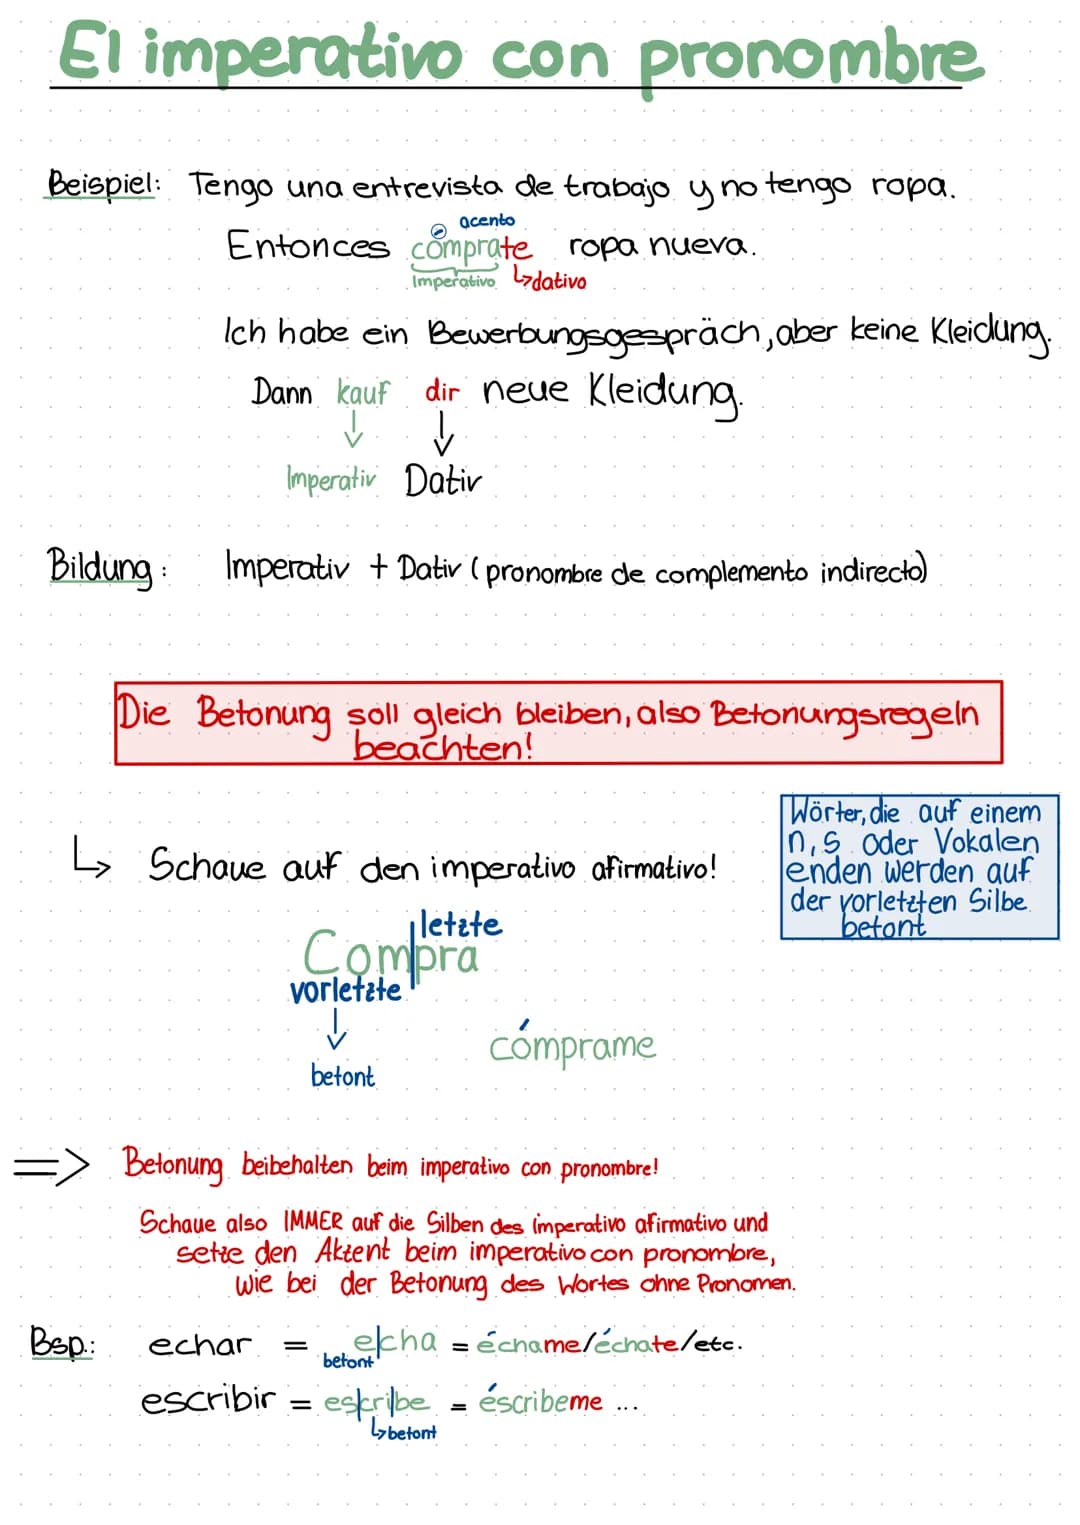 El imperativo con pronombre
Beispiel: Tengo una entrevista de trabajo y no tengo ropa.
acento
Entonces cómprate ropa nueva.
Imperativo ↳dativo
Ich habe ein Bewerbungsgespräch, aber keine Kleidung.
Dann kauf dir neue Kleidung.
Imperativ Dativ
Bildung: Imperativ + Dativ (pronombre de complemento indirecto)
Die Betonung soll gleich bleiben, also Betonungsregeln
beachten!
Wörter, die auf einem
n, s oder Vokalen
enden werden auf
der vorletzten Silbe
betont
↳ Schaue auf den imperativo afirmativo!
letzte
Com|pra
vorletzte
betont
cómprame
=> Betonung beibehalten beim imperativo con pronombre!
Schaue also IMMER auf die Silben des imperativo afirmativo und
setze den Akzent beim imperativo con pronombre,
wie bei der Betonung des Wortes ohne Pronomen.
Bsp.: echar = e|cha = échame/échate/etc.
betont
escribir = es|cri|be = éscribeme ...
↳betont